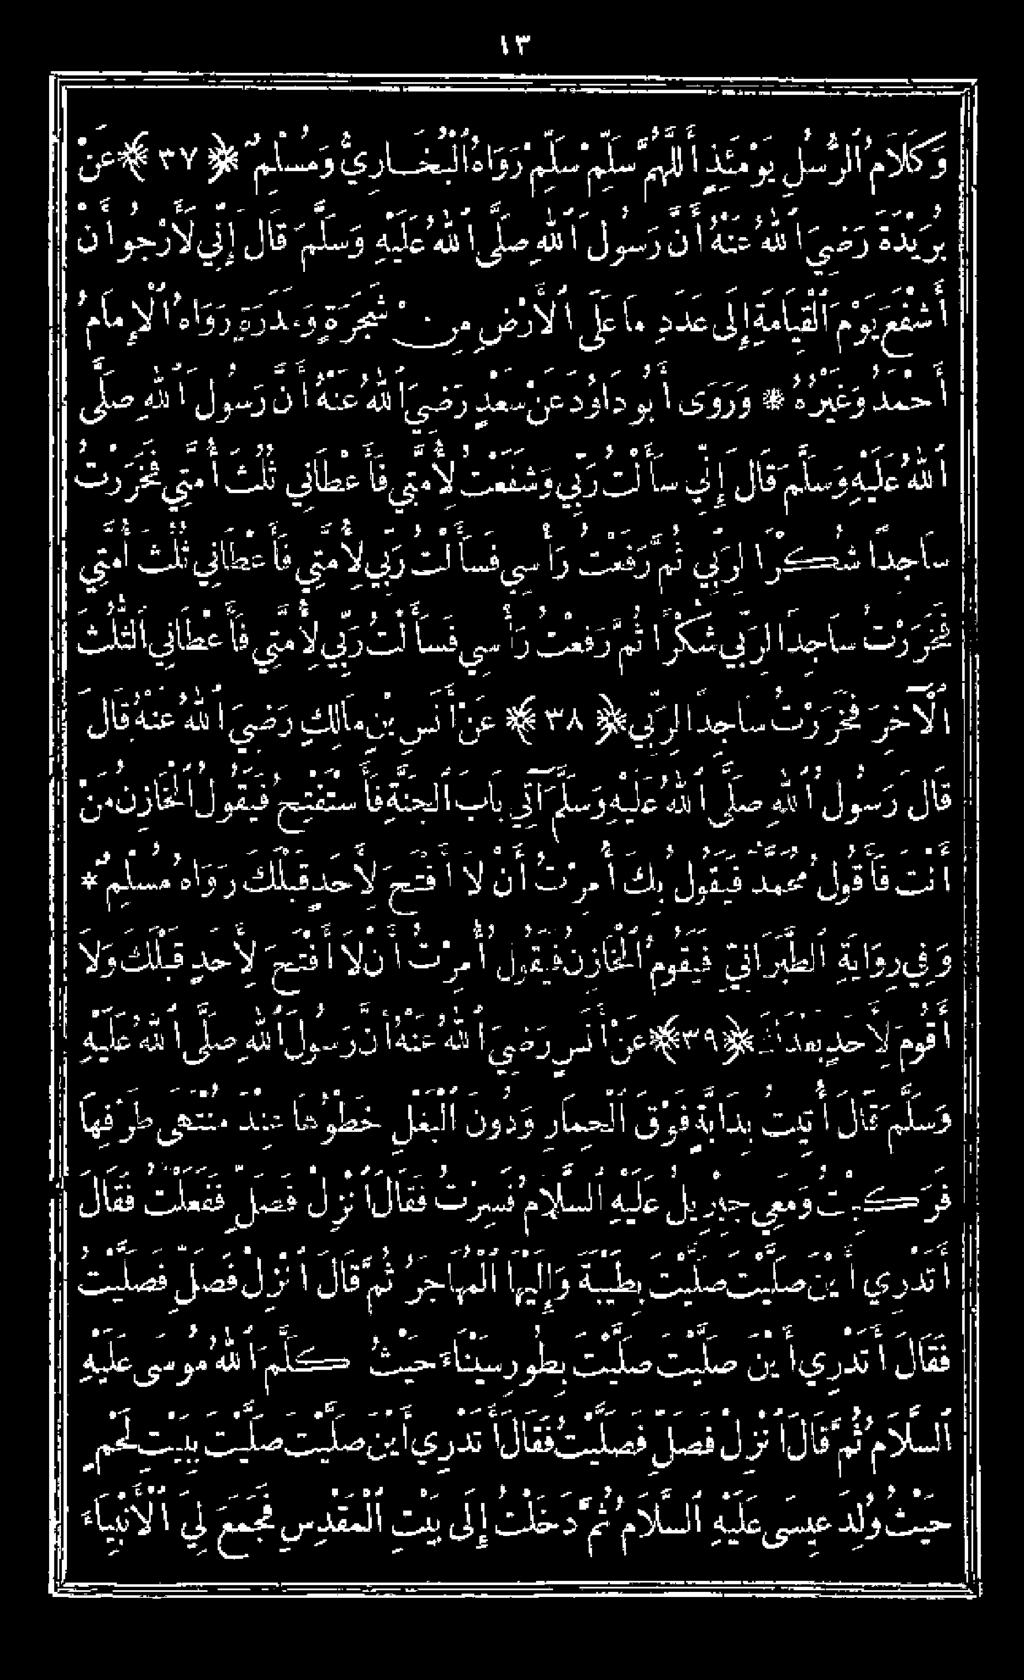 ١٣
وَكَلَامُ ٱلرُّسُلِ يَوْمَئِذٍ أَللّٰهُمَّ سَلِّمْ سَلِّمْ رَوَاهُ ٱلْبُخَارِيُّ وَمُسْلِمٌ ﴿٣٧﴾ عَنْ
بُرَيْدَةَ رَضِيَ ٱللهُ عَنْهُ أَنَّ رَسُولَ ٱللهِ صَلَّى ٱللهُ عَلَيْهِ وَسَلَّمَ قَالَ إِنِّي لَأَرْجُو أَنْ
أَشْفَعَ يَوْمَ ٱلْقِيَامَةِ إِلَى عَدَدِ مَا عَلَى ٱلْأَرْضِ مِنْ شَجَرَةٍ وَمَدَرَةٍ رَوَاهُ ٱلْإِمَامُ
أَحْمَدُ وَغَيْرُهُ * وَرَوَى أَبُو دَاوُدَ عَنْ سَعْدٍ رَضِيَ ٱللهُ عَنْهُ أَنَّ رَسُولَ ٱللهِ صَلَّى
ٱللهُ عَلَيْهِ وَسَلَّمَ قَالَ إِنِّي سَأَلْتُ رَبِّي وَشَفَعْتُ لِأُمَّتِي فَأَعْطَانِي ثُلُثَ أُمَّتِي فَخَرَرْتُ
سَاجِدًا شُكْرًا لِرَبِّي ثُمَّ رَفَعْتُ رَأْسِي فَسَأَلْتُ رَبِّي لِأُمَّتِي فَأَعْطَانِي ثُلُثَ أُمَّتِي
فَخَرَرْتُ سَاجِدًا لِرَبِّي شُكْرًا ثُمَّ رَفَعْتُ رَأْسِي فَسَأَلْتُ رَبِّي لِأُمَّتِي فَأَعْطَانِي ٱلثُّلُثَ
ٱلْآخِرَ فَخَرَرْتُ سَاجِدًا لِرَبِّي ﴿٣٨﴾ عَنْ أَنَسِ بْنِ مَالِكٍ رَضِيَ ٱللهُ عَنْهُ قَالَ
قَالَ رَسُولُ ٱللهِ صَلَّى ٱللهُ عَلَيْهِ وَسَلَّمَ آتِي بَابَ ٱلْجَنَّةِ فَأَسْتَفْتِحُ فَيَقُولُ ٱلْخَازِنُ مَنْ
أَنْتَ فَأَقُولُ مُحَمَّدٌ فَيَقُولُ بِكَ أُمِرْتُ أَنْ لَا أَفْتَحَ لِأَحَدٍ قَبْلَكَ رَوَاهُ مُسْلِمٌ *
وَفِي رِوَايَةِ ٱلطَّبَرَانِيِّ فَيَقُومُ ٱلْخَازِنُ فَيَقُولُ أُمِرْتُ أَنْ لَا أَفْتَحَ لِأَحَدٍ قَبْلَكَ وَلَا
أَقُومَ لِأَحَدٍ بَعْدَكَ ﴿٣٩﴾ عَنْ أَنَسٍ رَضِيَ ٱللهُ عَنْهُ أَنَّ رَسُولَ ٱللهِ صَلَّى ٱللهُ عَلَيْهِ
وَسَلَّمَ قَالَ أُتِيتُ بِدَابَّةٍ فَوْقَ ٱلْحِمَارِ وَدُونَ ٱلْبَغْلِ خَطْوُهَا عِنْدَ مُنْتَهَى طَرْفِهَا
فَرَكِبْتُ وَمَعِي جِبْرِيلُ عَلَيْهِ ٱلسَّلَامُ فَسِرْتُ فَقَالَ ٱنْزِلْ فَصَلِّ فَفَعَلْتُ فَقَالَ
أَتَدْرِي أَيْنَ صَلَّيْتَ صَلَّيْتَ بِطَيْبَةَ وَإِلَيْهَا ٱلْمُهَاجَرُ ثُمَّ قَالَ ٱنْزِلْ فَصَلِّ فَصَلَّيْتُ
فَقَالَ أَتَدْرِي أَيْنَ صَلَّيْتَ صَلَّيْتَ بِطُورِ سَيْنَاءَ حَيْثُ كَلَّمَ ٱللهُ مُوسَى عَلَيْهِ
ٱلسَّلَامُ ثُمَّ قَالَ ٱنْزِلْ فَصَلِّ فَصَلَّيْتُ فَقَالَ أَتَدْرِي أَيْنَ صَلَّيْتَ صَلَّيْتَ بِبَيْتِ لَحْمٍ
حَيْثُ وُلِدَ عِيسَى عَلَيْهِ ٱلسَّلَامُ ثُمَّ دَخَلْتُ إِلَى بَيْتِ ٱلْمَقْدِسِ فَجُمِعَ لِيَ ٱلْأَنْبِيَاءُ